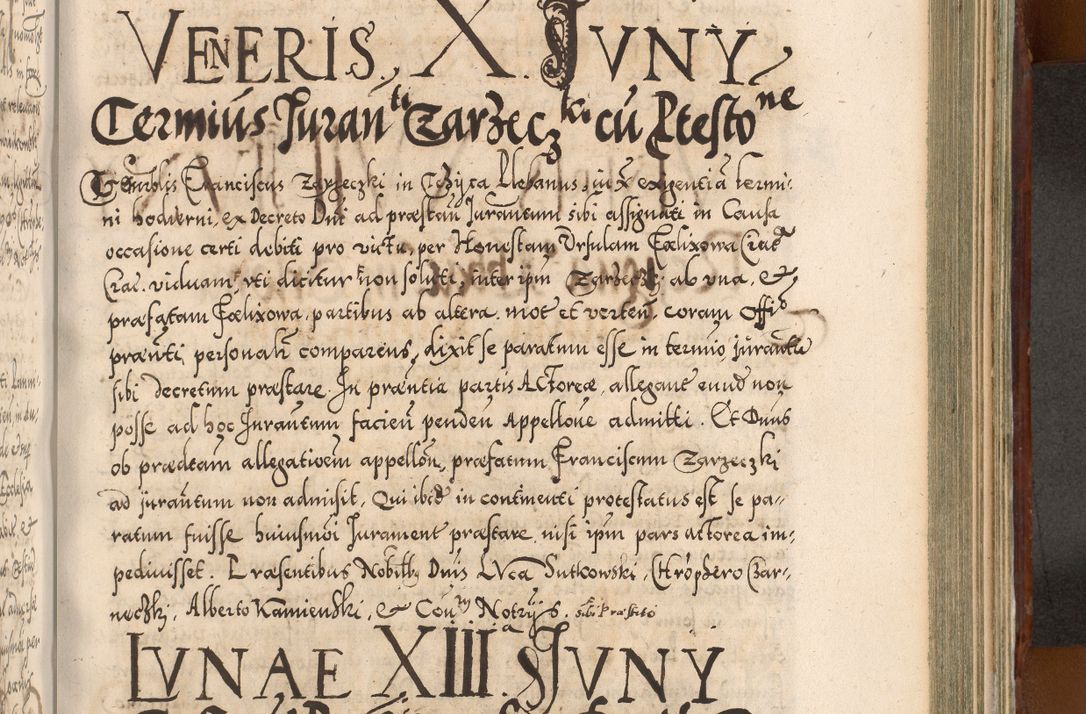 VENERIS. X. IVNY
Terminus Juran̄ti Zarzeczki cū Ptestone
Venlis Franciscus Zarzeczki in Plebanus, iux̄ exigentiā termi-
ni hodierni, ex Decreto Dni ad præstan̄ Juramentum sibi assignati in Causa
occasione certi debiti pro victu, per Honestam Vrsulam Fœlixowa
viduam, vti dicitur non soluti, inter ipm̄ Zarzeczki ab vna, et
præfatam Fœlixowa, partibus ab altera. mot et verten̄. coram Offio
præn̄ti personalr̄ comparens, dixit se paratum esse in termino juramtū
sibi decretum præstare. In præn̄tia partis Actoreæ, allegant eiusd non
posse ad hoc Juramentum facien̄ penden̄ Appellone admitti. Et Dnus
ob prædctam allegationem appellon̄, præfatum Franciscum Zarzeczki
ad juramtum non admisit, Qui ibid in continenti protestatus est se pa-
ratum fuisse huiusmōi Jurament præstare, nisi ipm̄ pars actorea im-
pediuisset. Præsentibus Nobilib Dnis Luca Sutkowski, Czar-
neczki, Alberto Kamienski, et Notrijs.
LVNAE XIII. IVNY